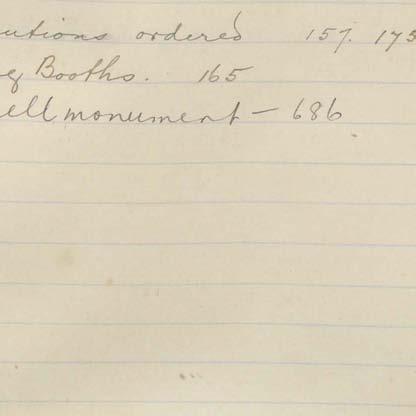 utions ordered 157. 175
g Booths. 165
ell monument — 686